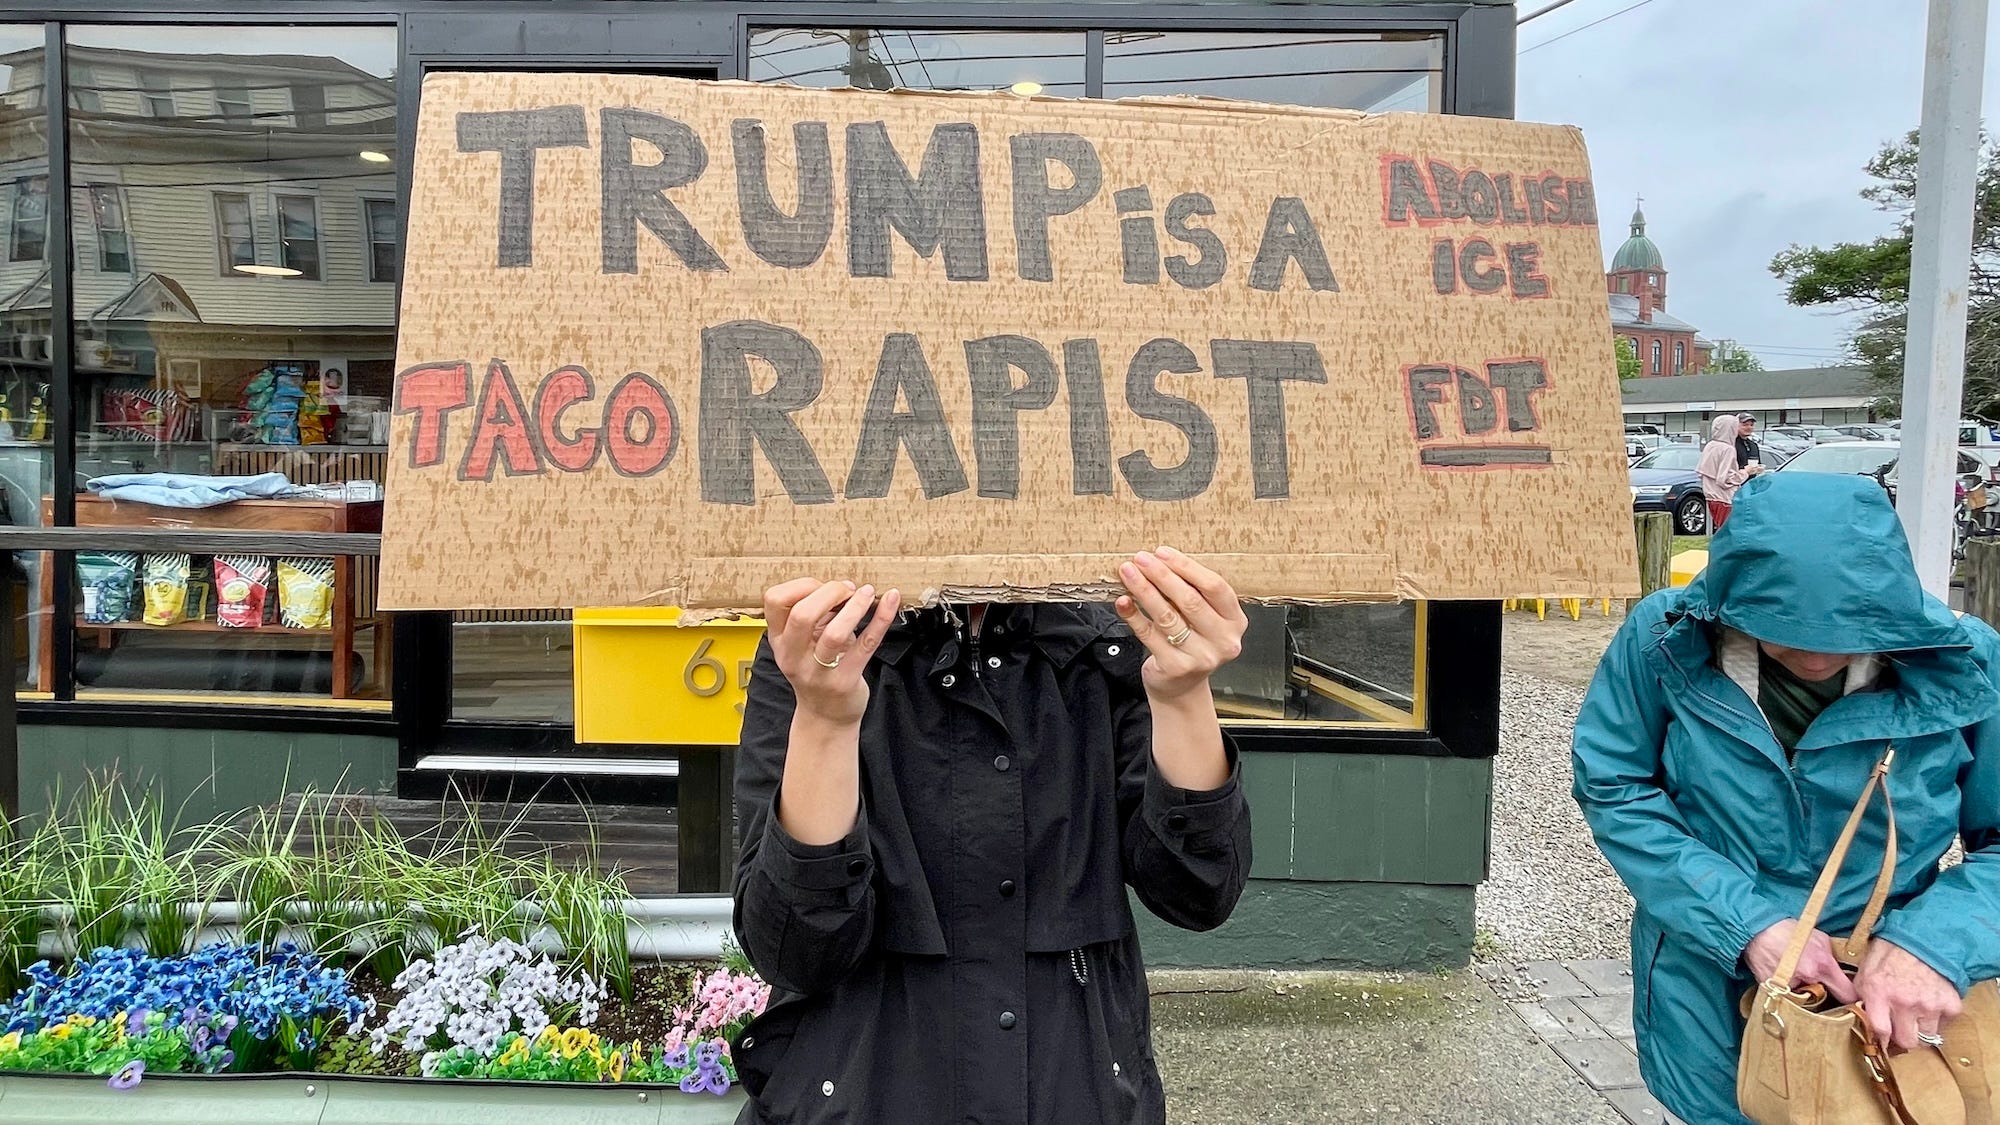 TRUMP iS A
TACO RAPIST
ABOLISH
ICE
FDT
65